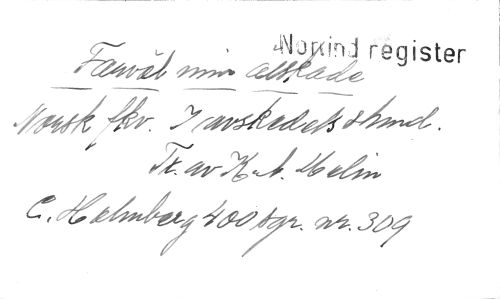 Nomind register
Farväl min älskade
Norsk fkv. I avskedets stund.
Tr. av K. A. Melin
C. Holmberg 400 sgr. nr. 309